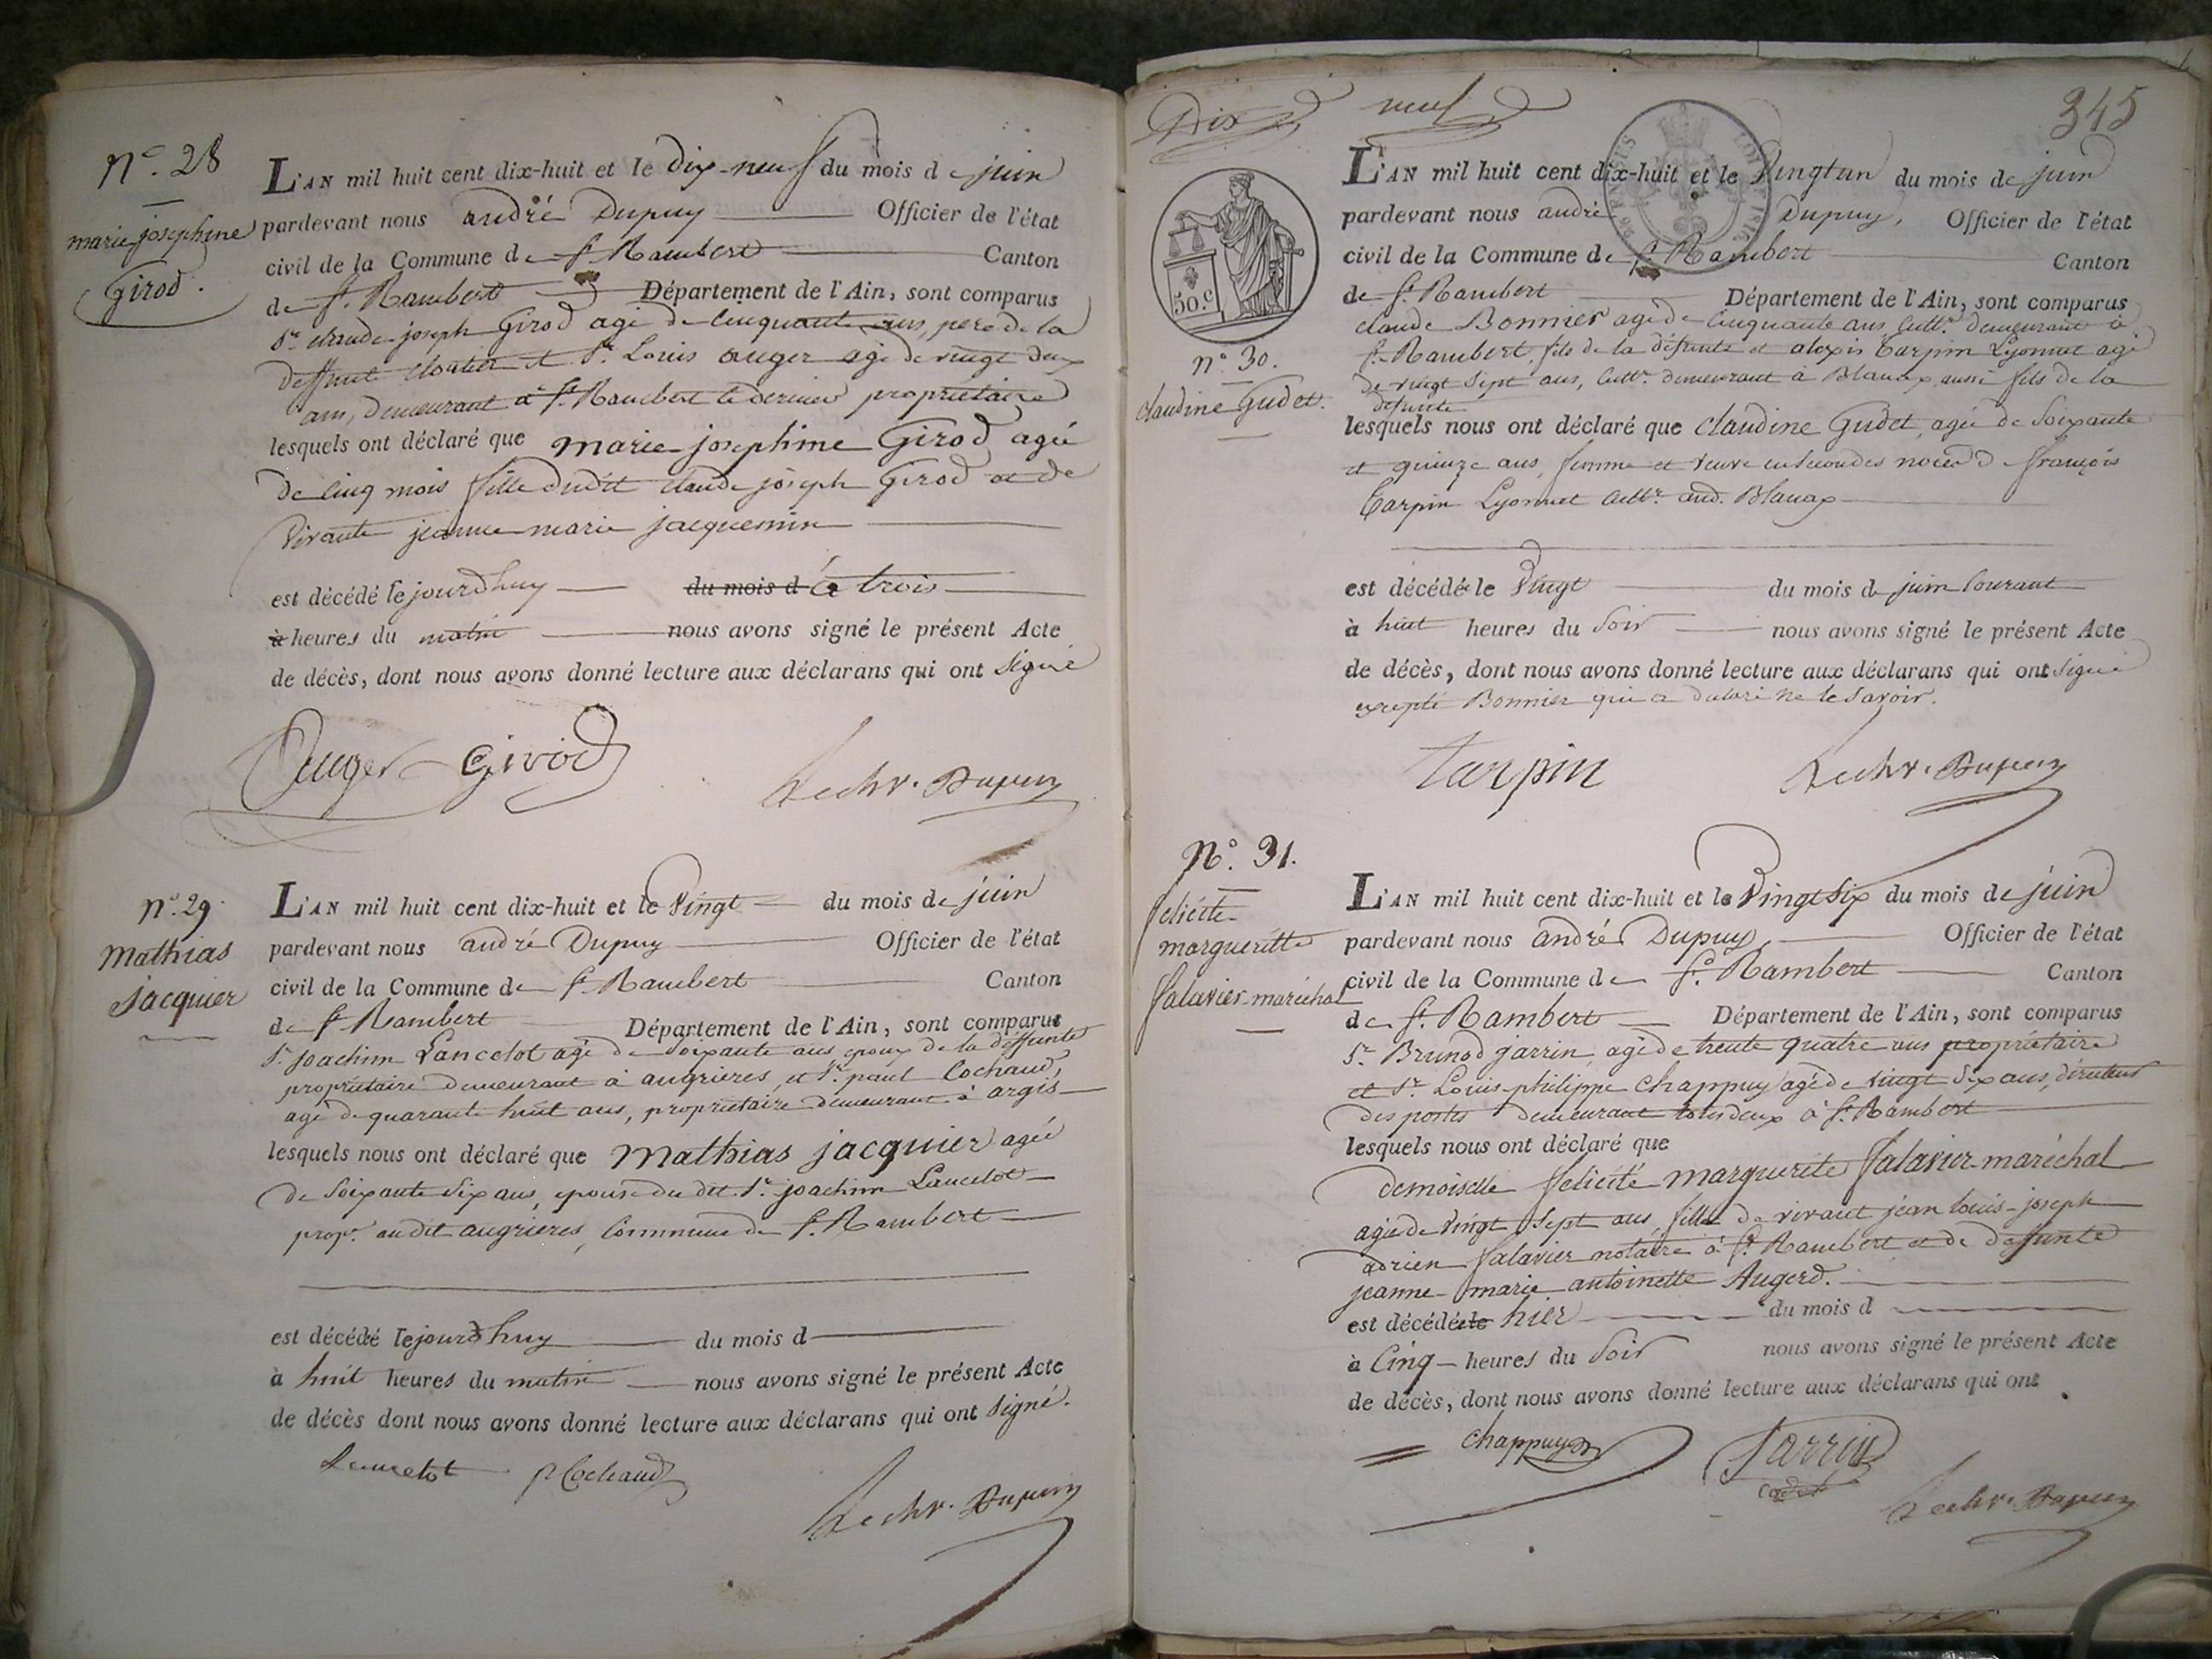 N.° 28
marie josephine
Girod.
L'AN mil huit cent dix-huit et le dix-neuf du mois de juin
pardevant nous andré Dupuy Officier de l'état
civil de la Commune de St. Rambert Canton
de St. Rambert Département de l'Ain, sont comparus
Sr. claude joseph Girod agé de Cinquante ans, pere de la
deffunte cloutier et Sr. Louis auger agé de vingt deux
ans, demeurant à St. Rambert le dernier propriétaire
lesquels ont déclaré que marie josephine Girod agée
de Cinq mois fille dudit claude joseph Girod et de
vivante jeanne marie jacquemin
est décédé le jourd'huy du mois d à trois
à heures du matin nous avons signé le présent Acte
de décès, dont nous avons donné lecture aux déclarans qui ont signé
Auger Girod
Le chr. Dupuy
n.° 29
Mathias
Jacquier
L'AN mil huit cent dix-huit et le vingt du mois de juin
pardevant nous andré Dupuy Officier de l'état
civil de la Commune de St. Rambert Canton
de St. Rambert Département de l'Ain, sont comparus
Sr. joachim Lancelot agé de soixante ans epoux de la deffunte
propriétaire demeurant à angrieres, et Sr. paul Cochaud,
agé de quarante huit ans, propriétaire demeurant à argis
lesquels nous ont déclaré que Mathias jacquier agée
de soixante six ans, epouse du dit Sr. joachim Lancelot
propr. au dit angrieres, Commune de St. Rambert
est décédé le jourd'huy du mois d
à huit heures du matin nous avons signé le présent Acte
de décès dont nous avons donné lecture aux déclarans qui ont signé.
Lancelot P Cochaud
Le chr. Dupuy
Dix neuf
345
50.c
n.° 30.
claudine Gudet.
L'AN mil huit cent dix-huit et le vingtun du mois de juin
pardevant nous andré Dupuy, Officier de l'état
civil de la Commune de St. Rambert Canton
de St. Rambert Département de l'Ain, sont comparus
claude Bonnier agé de Cinquante ans, cultr. demeurant à
St. Rambert, fils de la défunte et alexis Tarpin Lyonnet agé
de vingt sept ans, cultr. demeurant à Blanax, aussi fils de la
défunte
lesquels nous ont déclaré que claudine Gudet, agée de soixante
et quinze ans, femme et veuve en secondes noces de françois
Tarpin Lyonnet cultr. aud. Blanax
est décédée le vingt du mois de juin courant
à huit heures du soir nous avons signé le présent Acte
de décès, dont nous avons donné lecture aux déclarans qui ont signé
excepté Bonnier qui a déclaré ne le savoir.
tarpin
Le chr. Dupuy
N.° 31.
felicité
margueritte
Salavier-maréchal
L'AN mil huit cent dix-huit et le vingt six du mois de juin
pardevant nous andré Dupuy Officier de l'état
civil de la Commune de St. Rambert Canton
de St. Rambert Département de l'Ain, sont comparus
Sr. Brunod jarrin, agé de trente quatre ans propriétaire
et Sr. Louis-philippe Chappuy agé de vingt six ans, directeur
des postes demeurant tous deux à St. Rambert
lesquels nous ont déclaré que
demoiselle felicité marguerite Salavier-maréchal
agée de vingt sept ans, fille de vivant jean louis-joseph
adrien Salavier notaire à St. Rambert et de defunte
jeanne-marie antoinette Augerd.
est décédée hier du mois d
à Cinq heures du soir nous avons signé le présent Acte
de décès, dont nous avons donné lecture aux déclarans qui ont
Chappuy Jarrin
cadet
Le chr. Dupuy